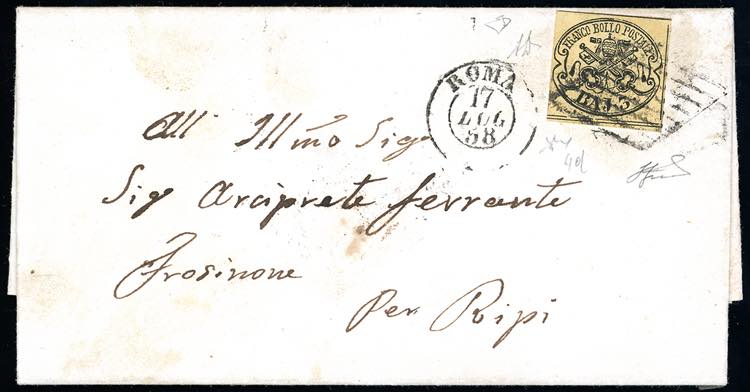 FRANCO BOLLO POSTALE
BAJ. 3.
ROMA
17
LUG
58
All' Illmo Sig
Sig Arciprete Ferrante
Frosinone
Per Ripi